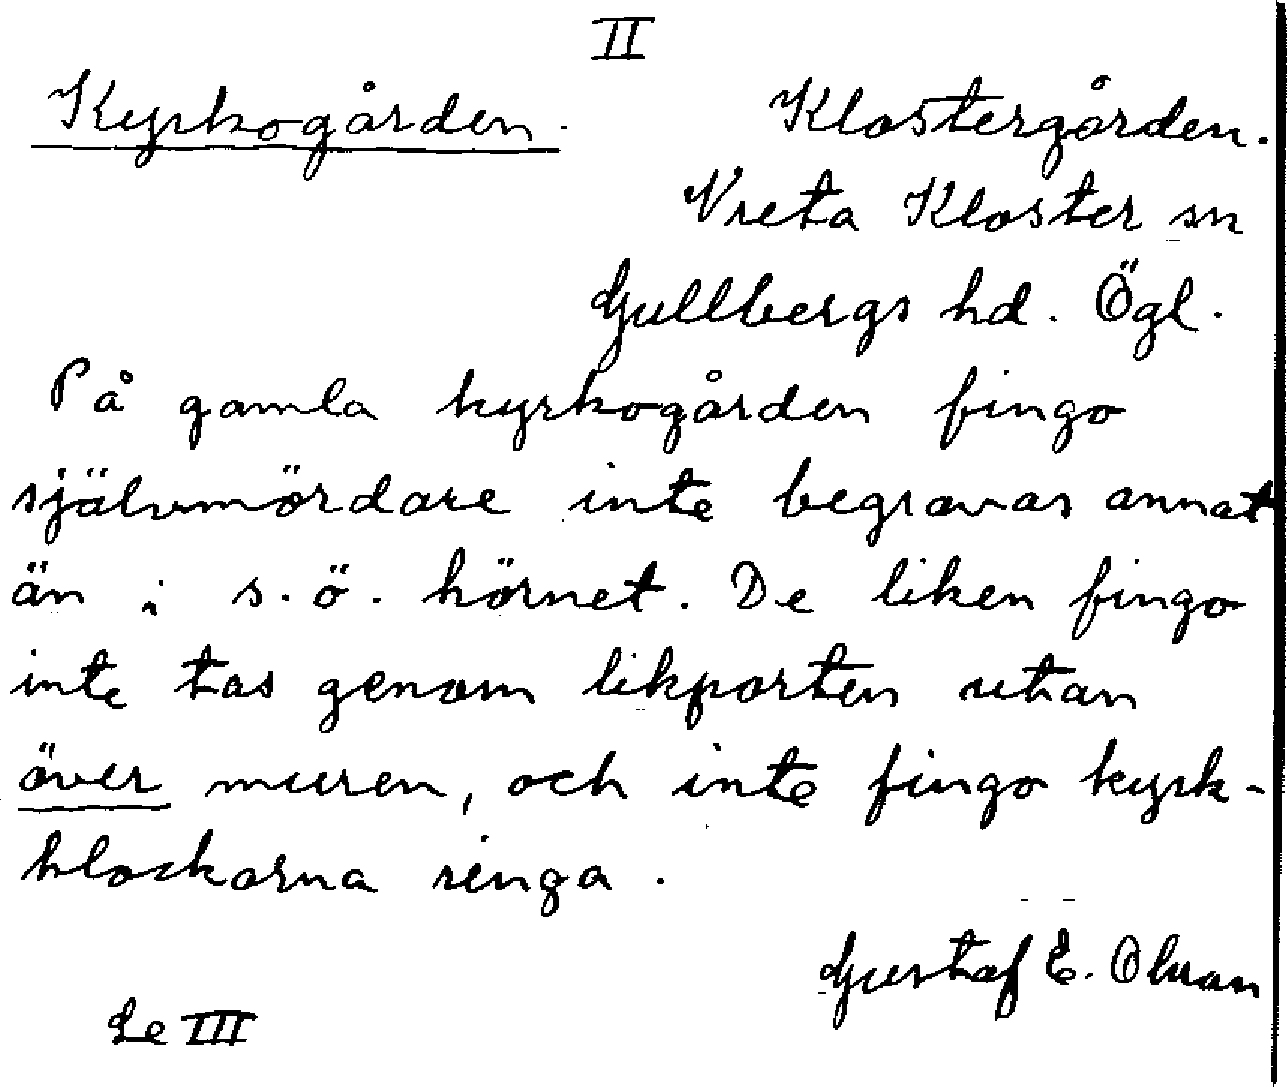 II
Kyrkogården.
Klostergården.
Vreta Kloster sn
Gullbergs hd. Ögl.
På gamla kyrkogården fingo
självmördare inte begravas annat
än i s.ö. hörnet. De liken fingo
inte tas genom likporten utan
över muren, och inte fingo kyrk-
klockorna ringa.
Gustaf E. Olsson
Se III